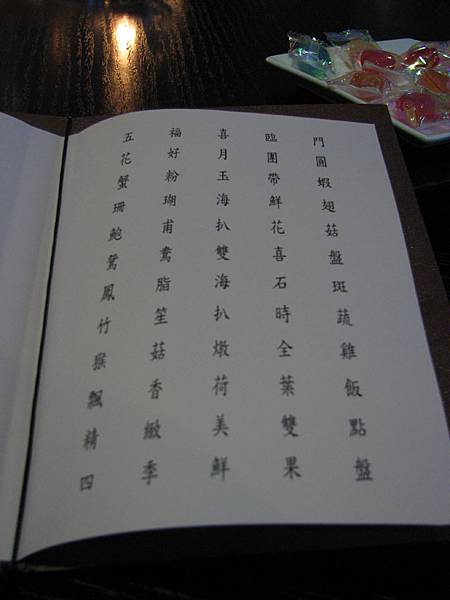 五福喜臨門
花好月團圓
蟹粉玉帶蝦
珊瑚海鮮翅
鮑甫扒花菇
鴛鴦雙喜盤
鳳脂海石斑
竹笙扒時蔬
猴菇燉全雞
飄香荷葉飯
精緻美雙點
四季鮮果盤